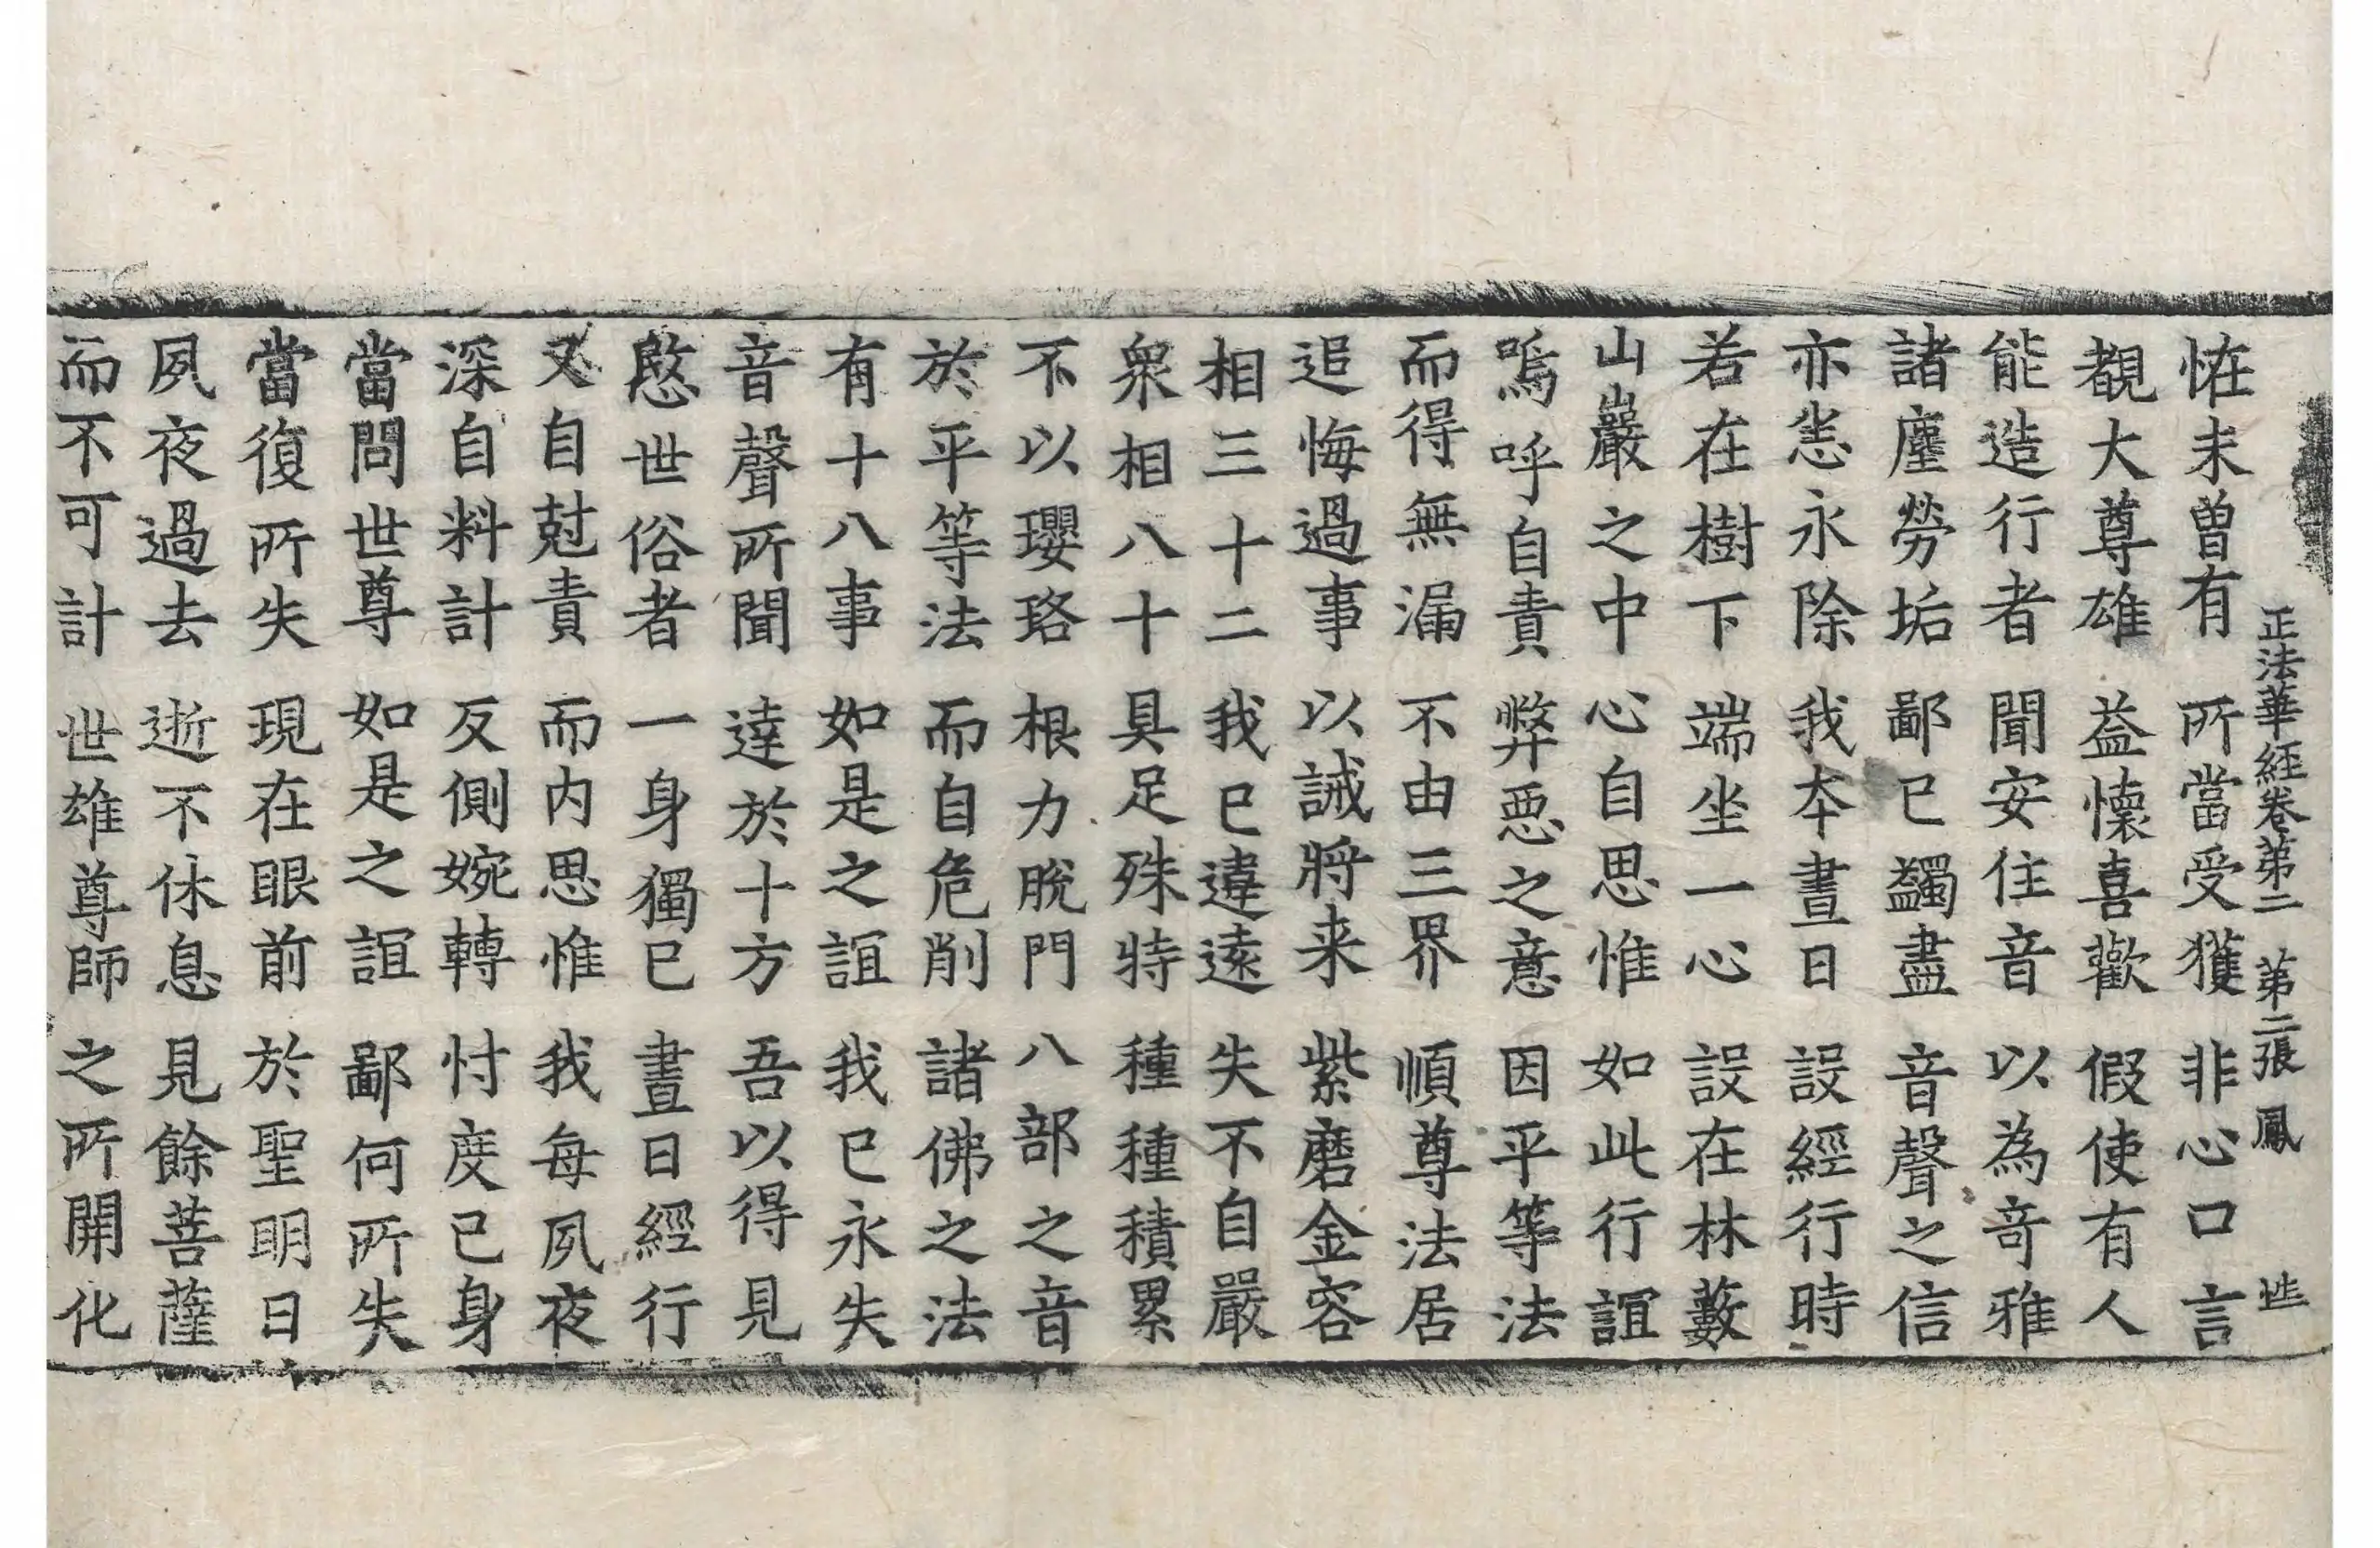 正法華經卷第二 第二張 鳳
恠未曾有 所當受獲 非心口言
覩大尊雄 益懷喜歡 假使有人
能造行者 聞安住音 以為竒雅
諸塵勞垢 鄙已蠲盡 音聲之信
亦恙永除 我本晝日 設經行時
若在樹下 端坐一心 設在林藪
山巖之中 心自思惟 如此行誼
嗚呼自責 弊惡之意 因平等法
而得無漏 不由三界 順尊法居
追悔過事 以誡將来 紫磨金容
相三十二 我已違遠 失不自嚴
衆相八十 具足殊特 種種積累
不以瓔珞 根力脫門 八部之音
於平等法 而自危削 諸佛之法
有十八事 如是之誼 我已永失
音聲所聞 達於十方 吾以得見
愍世俗者 一身獨已 晝日經行
又自剋責 而内思惟 我每夙夜
深自料計 反側婉轉 忖度已身
當問世尊 如是之誼 鄙何所失
當復所失 現在眼前 於聖明日
夙夜過去 逝不休息 見餘菩薩
而不可計 世雄尊師 之所開化